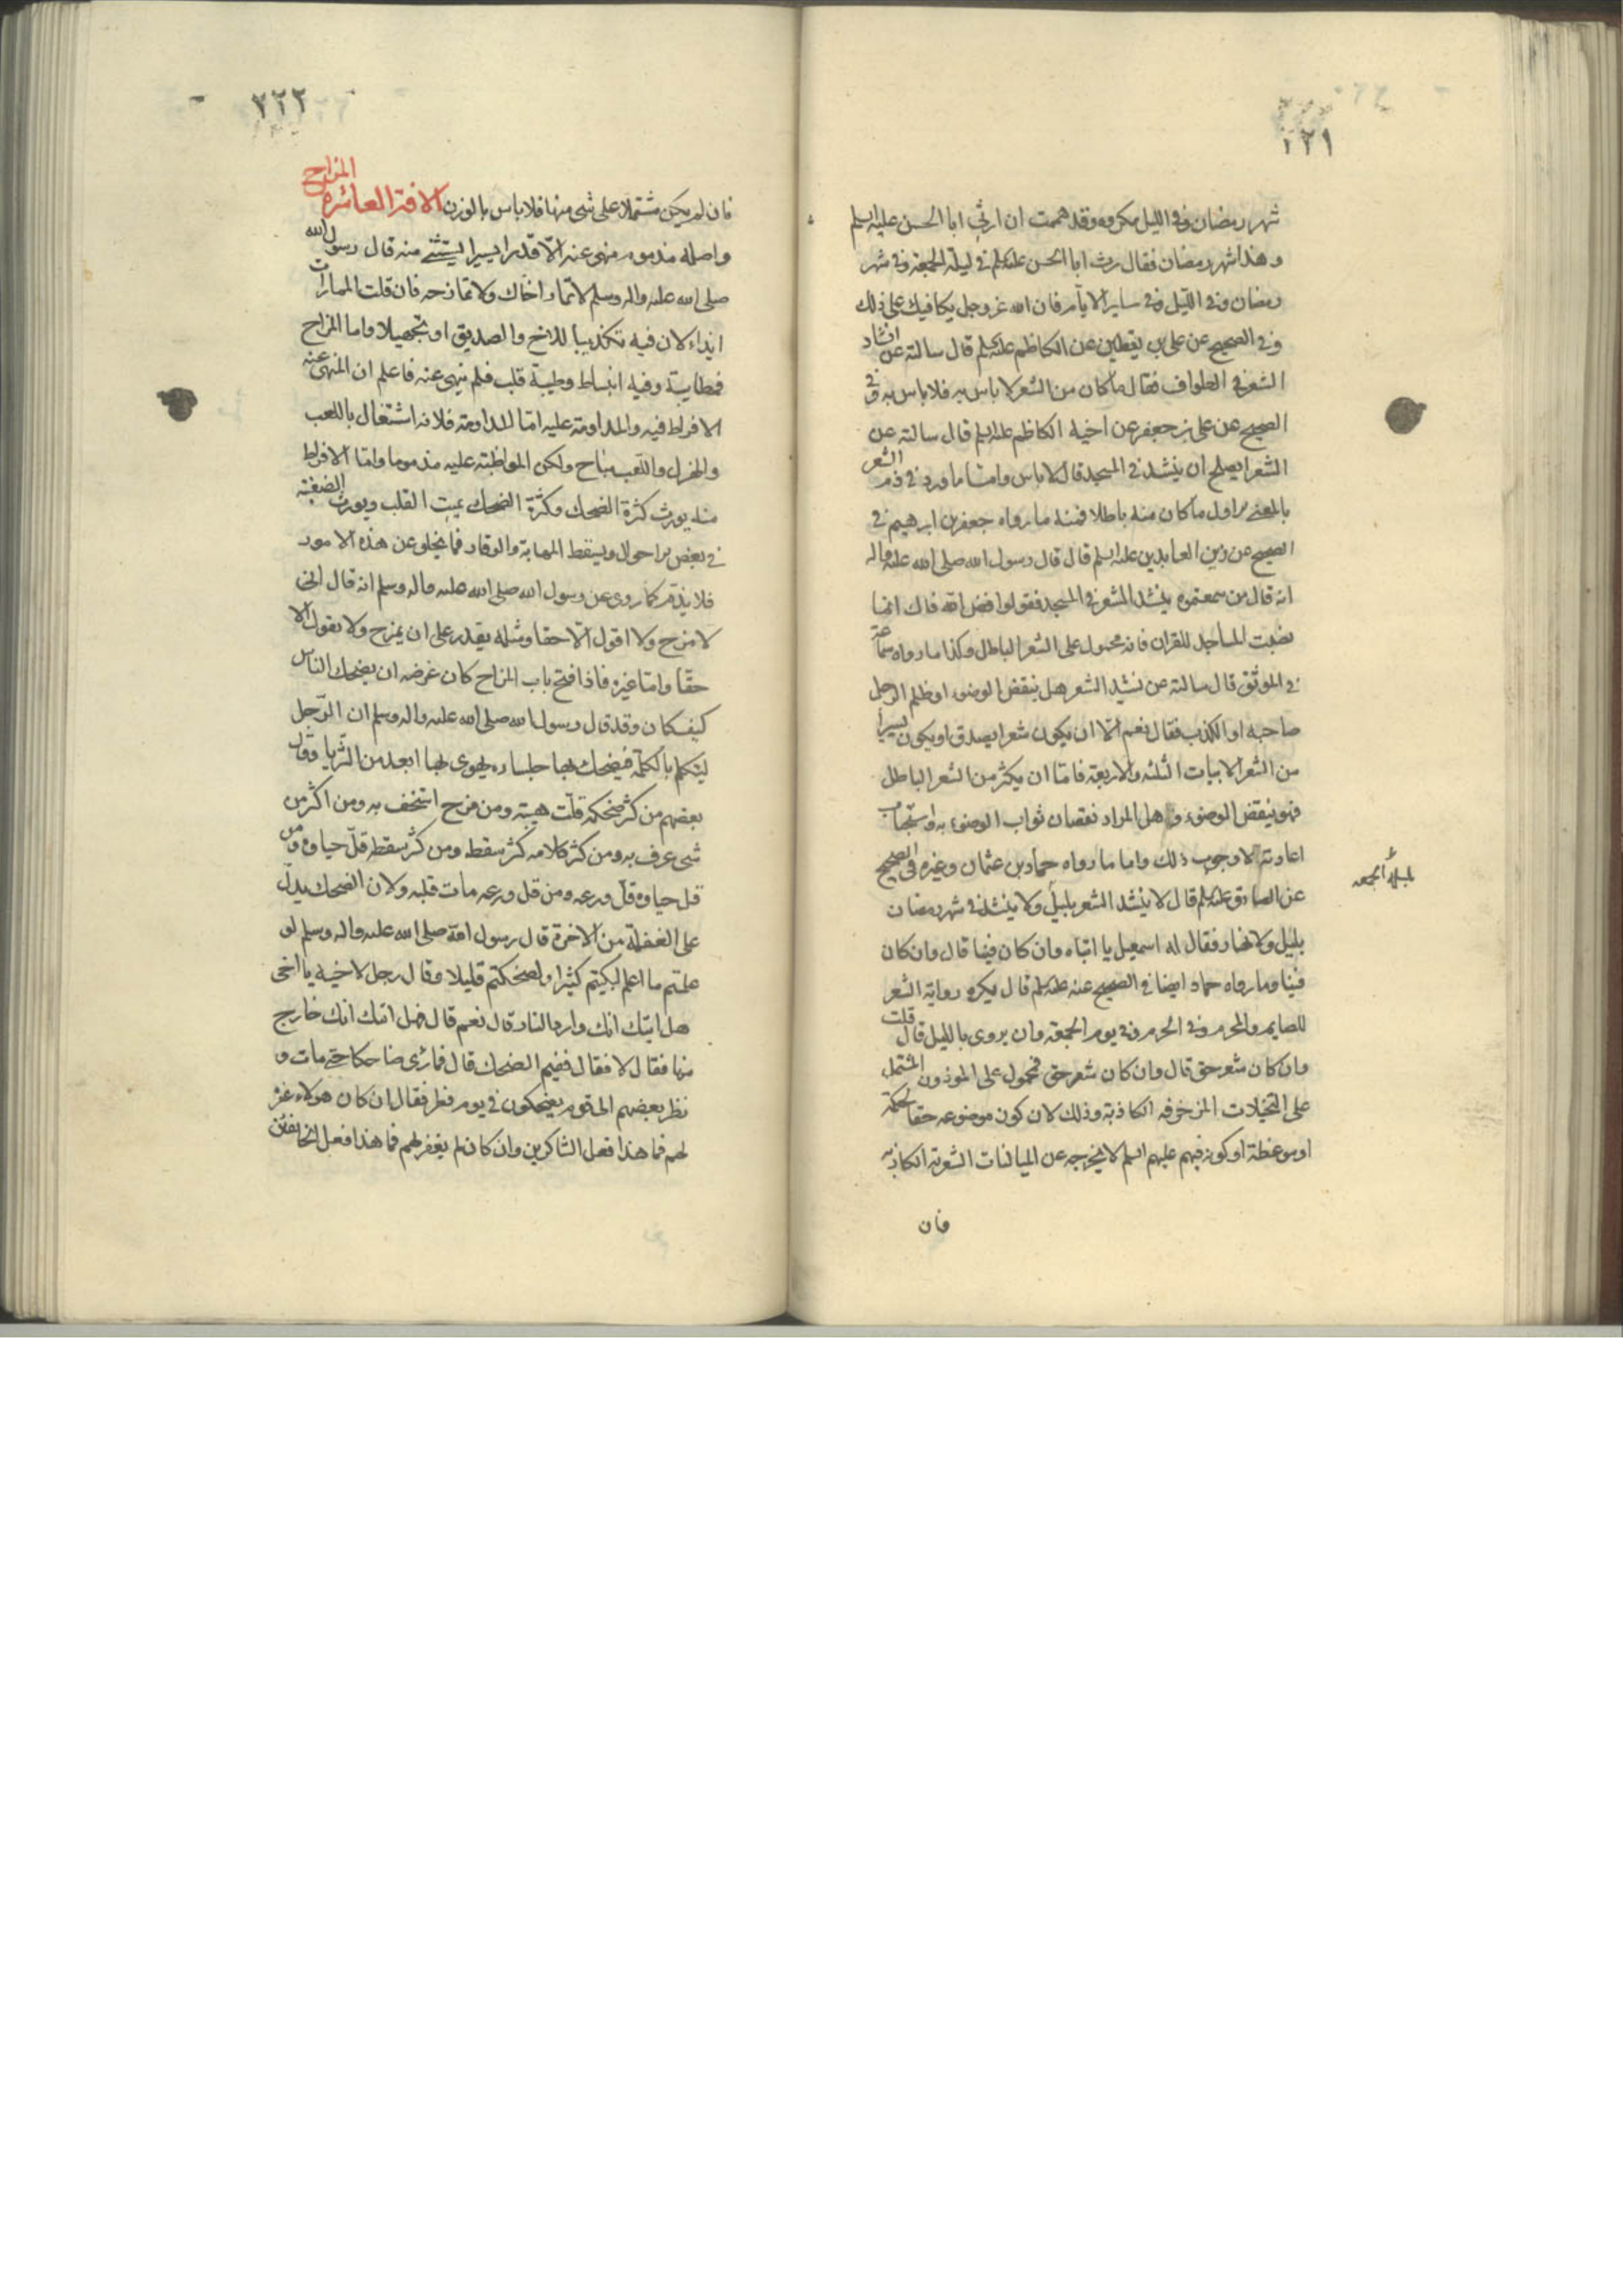 ٢٢١
شهر رمضان وفي الليل مكروه وقد هممت ان ارثي ابا الحسن عليه السلم
وهذا شهر رمضان فقال رث ابا الحسن عليه السلم في ليلة الجمعة وفي شهر
رمضان وفي الليل وفي ساير الايام فان الله عز وجل يكافيك على ذلك
وفي الصحيح عن علي بن يقطين عن الكاظم عليه السلم قال سالته عن انشاد
الشعر في الطواف فقال ما كان من الشعر لا باس به فلا باس به وفي
الصحيح عن علي بن جعفر عن اخيه الكاظم عليه السلم قال سالته عن
الشعر ايصلح ان ينشد في المسجد قال لا باس واما ما ورد في ذم الشعر
بالمعنى الاول ما كان منه باطلا فمنه ما رواه جعفر بن ابرهيم في
الصحيح عن زين العابدين عليه السلم قال قال رسول الله صلى الله عليه واله
انه قال من سمعتموه ينشد الشعر في المسجد فقولوا فض الله فاك انما
نصبت المساجد للقران فانه محمول على الشعر الباطل وكذا ما رواه سماعة
في الموثق قال سالته عن نشيد الشعر هل ينقض الوضوء او ظلم الرجل
صاحبه او الكذب فقال نعم الا ان يكون شعرا يصدق او يكون يسيرا
من الشعر الابيات الثلثه والاربعة فاما ان يكثر من الشعر الباطل
فهو ينقض الوضوء وهل المراد نقصان ثواب الوضوء به او ستحباب
اعادته لا وجوب ذلك واما ما رواه حماد بن عثمان وغيره في الصحيح
عن الصادق عليه السلم قال لا ينشد الشعر بليل ولا ينشد في شهر رمضان
بليل ولا نهار فقال له اسمعيل يا ابتاه وان كان فينا قال وان كان
فينا وما رواه حماد ايضا في الصحيح عنه عليه السلم قال يكره رواية الشعر
للصايم والمحرم وفي الحرم وفي يوم الجمعة وان يروى بالليل قال قلت
وان كان شعر حق قال وان كان شعر حق فمحمول على الموزون المشتمل
على التخيلات المزخرفه الكاذبة وذلك لان كون موضوعه حقا كحكمة
او موعظة او كونه فيهم عليهم السلم لا يخرجه عن المبالغات الشعرية الكاذبه
فان
ليلة الجمعه
٢٢٢
فان لم يكن مشتملا على شى منها فلا باس بالوزن الافة العاشرة المزاح
واصله مذموم منهى عنه الا قدرا يسيرا يستثنى منه قال رسول الله
صلى الله عليه واله وسلم لا تمار اخاك ولا تمازحه فان قلت الممارات
ايذاء لان فيه تكذيبا للاخ والصديق او تجهيلا واما المزاح
فمطايبة وفيه انبساط وطيبة قلب فلم ينهى عنه فاعلم ان المنهى عنه
الافراط فيه والمداومة عليه اما المداومة فلانه اشتغال باللعب
والهزل واللعب مباح ولكن المواظبته عليه مذموما واما الافراط
منه يورث كثرة الضحك وكثرة الضحك يميت القلب ويورث الضغينة
في بعض الاحوال ويسقط المهابة والوقار فما يخلو عن هذه الامور
فلا يذم كما روى عن رسول الله صلى الله عليه واله وسلم انه قال انى
لا مزح ولا اقول الا حقا ومثله يقدر على ان يمزح ولا يقول الا
حقا واما غيره فاذا فتح باب المزاح كان غرضه ان يضحك الناس
كيف كان وقد قال رسول الله صلى الله عليه واله وسلم ان الرجل
ليتكلم بالكلمة فيضحك بها جلساءه يهوى بها ابعد من الثريا وقال
بعضهم من كثر ضحكه قلت هيبته ومن مزح استخف به ومن اكثر من
شى عرف به ومن كثر كلامه كثر سقطه ومن كثر سقطه قل حياوه ومن
قل حياوه قل ورعه ومن قل ورعه مات قلبه ولان الضحك يدل
على الغفلة من الاخرة قال رسول الله صلى الله عليه واله وسلم لو
علمتم ما اعلم لبكيتم كثيرا ولضحكتم قليلا وقال رجل لاخيه يا اخى
هل اتيك انك وارد النار قال نعم قال فهل اتيك انك خارج
منها فقال لا فقال ففيم الضحك قال فما رئى ضاحكا حتى مات و
نظر بعضهم الى قوم يضحكون في يوم فطر فقال ان كان هولاء غفر
لهم فما هذا فعل الشاكرين وان كان لم يغفر لهم فما هذا فعل الخائفين